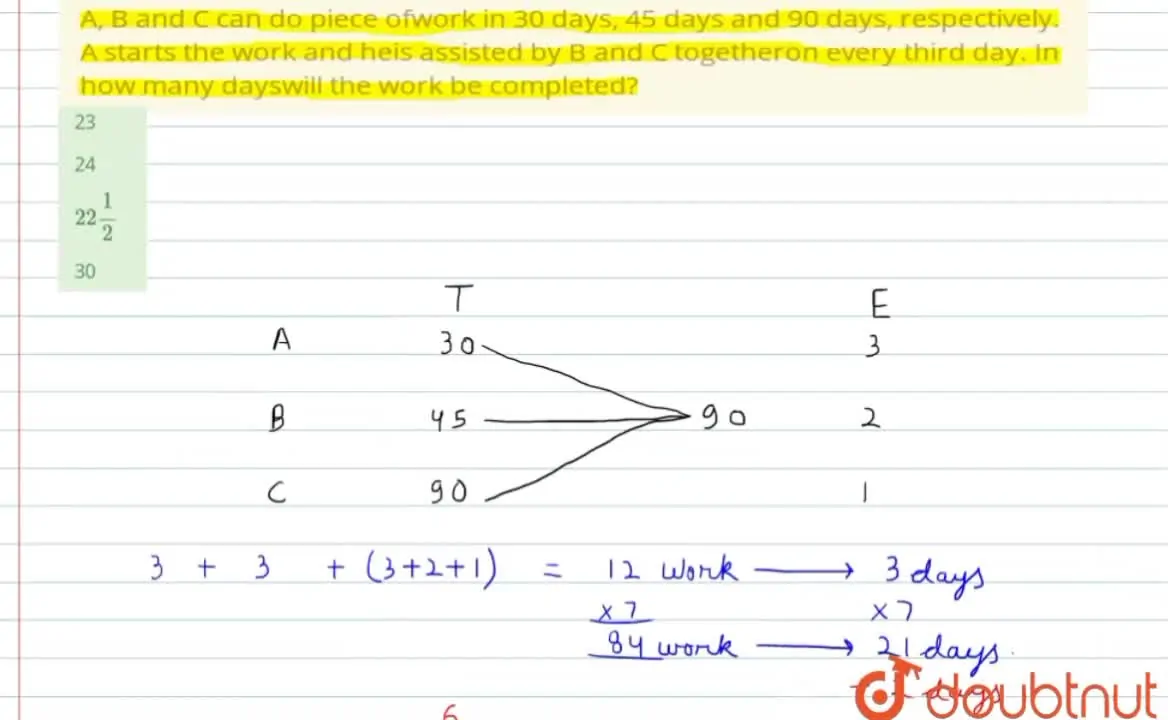 A, B and C can do piece ofwork in 30 days, 45 days and 90 days, respectively.
A starts the work and heis assisted by B and C togetheron every third day. In
how many dayswill the work be completed?
23
24
22 1/2
30
T E
A 30 3
B 45 90 2
C 90 1
3 + 3 + (3+2+1) = 12 work → 3 days
x 7 x 7
84 work → 21 days.
days
doubtnut
6